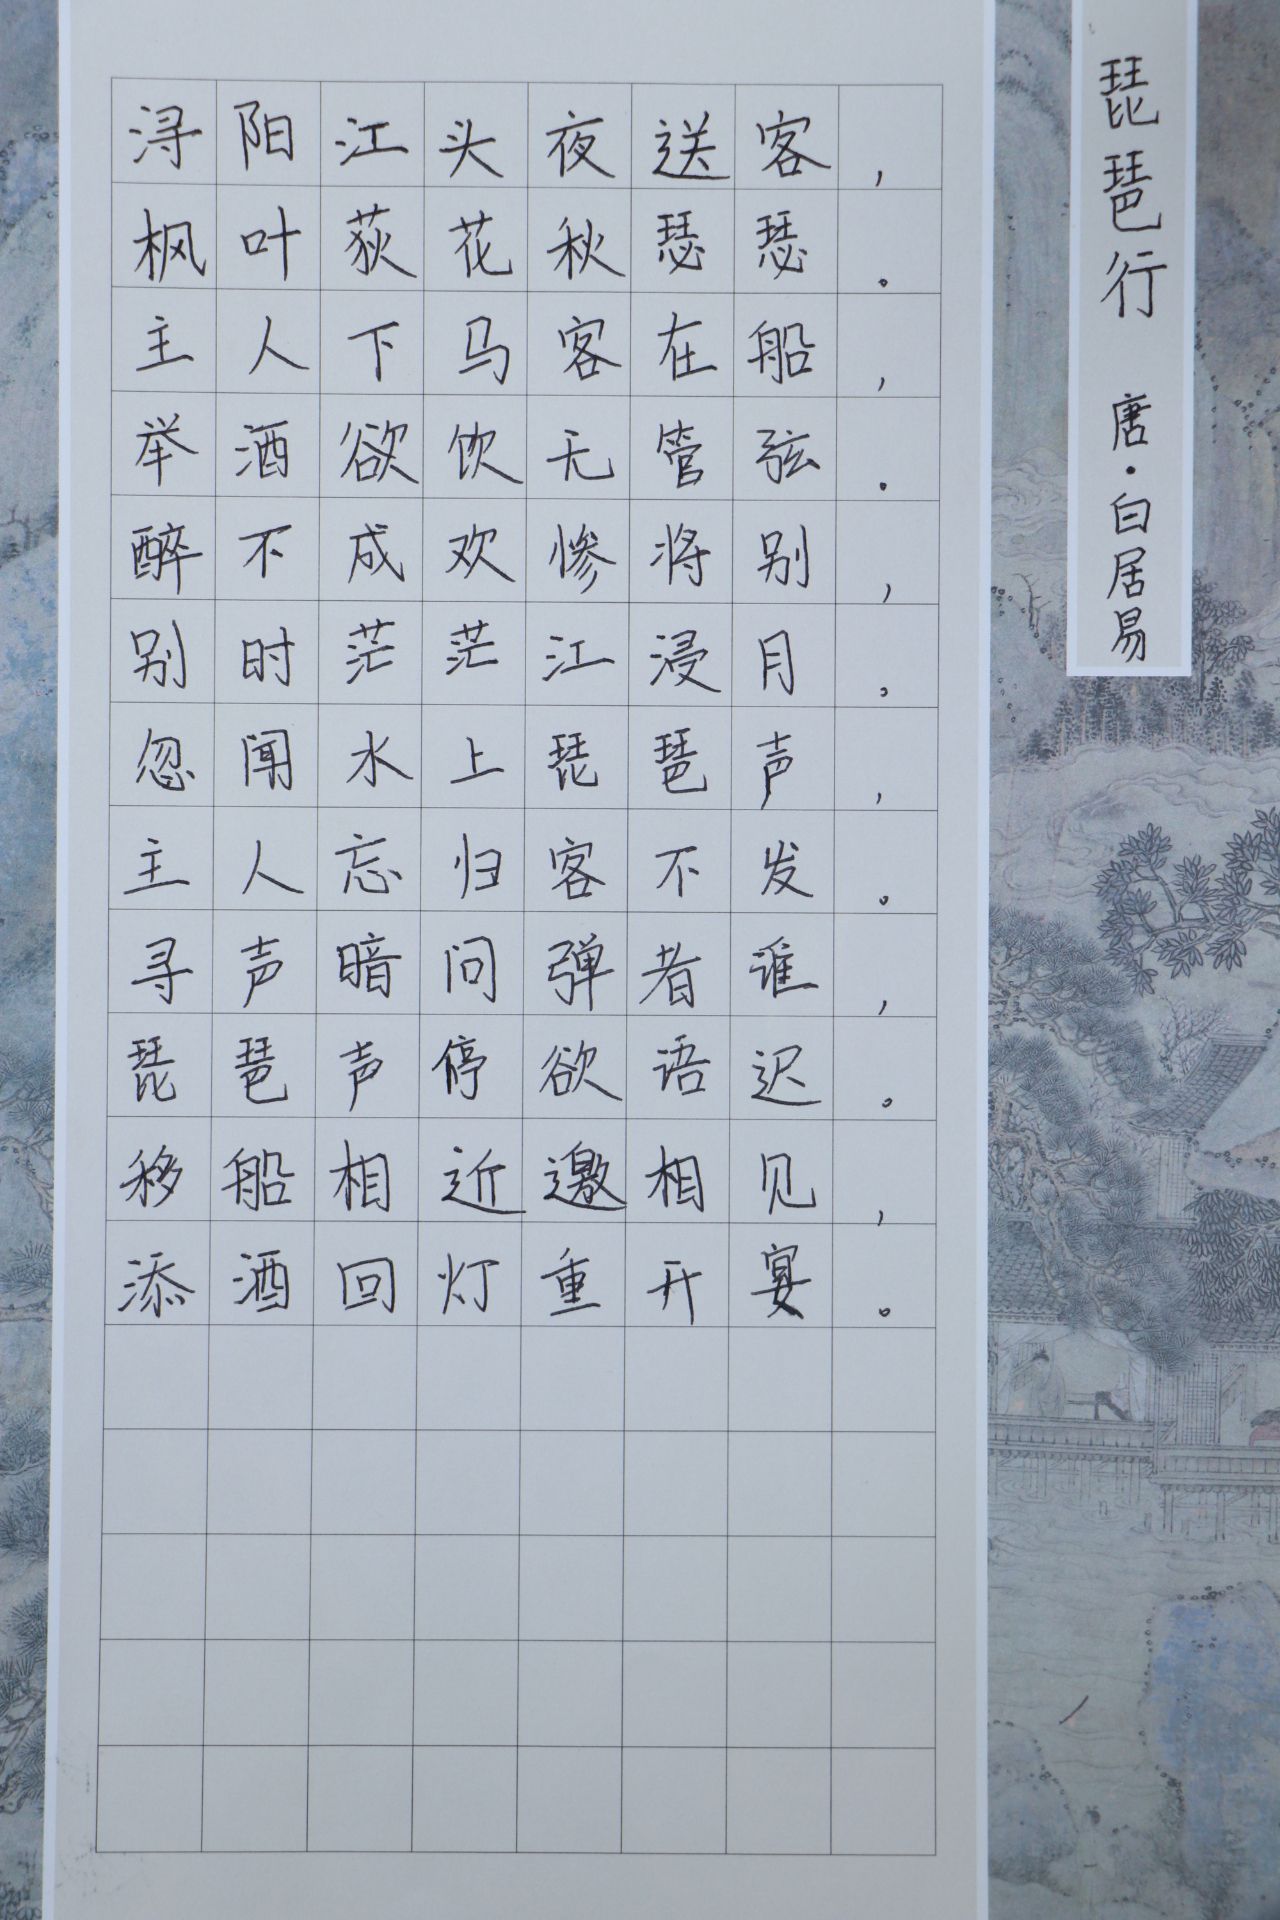 琵琶行 唐·白居易
浔阳江头夜送客，
枫叶荻花秋瑟瑟。
主人下马客在船，
举酒欲饮无管弦。
醉不成欢惨将别，
别时茫茫江浸月。
忽闻水上琵琶声，
主人忘归客不发。
寻声暗问弹者谁，
琵琶声停欲语迟。
移船相近邀相见，
添酒回灯重开宴。